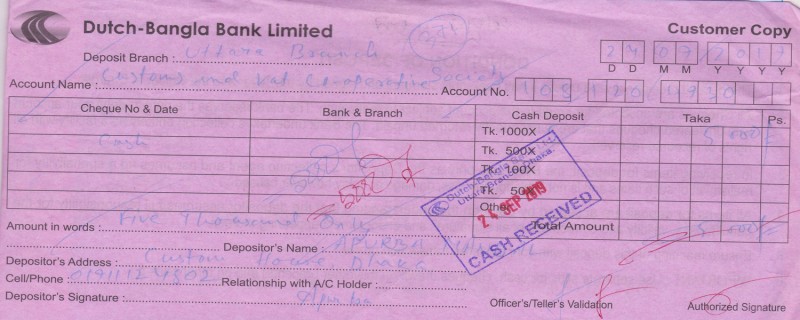 Dutch-Bangla Bank Limited
Customer Copy
Deposit Branch : Uttara Branch
D D M M Y Y Y Y
Account Name : Customs and Vat Co-operative Society
Account No. 108 120
Cheque No & Date Bank & Branch Cash Deposit Taka Ps.
Cash Tk. 1000X 5 000/-
Tk. 500X
Tk. 100X
Tk. 50X
Other
Total Amount 5 000/-
Dutch-Bangla Bank
Uttara Branch, Dhaka.
24 SEP 2019
CASH RECEIVED
Amount in words : Five Thousand Only
Depositor's Name : APURBA
Depositor's Address : Custom House, Dhaka
Cell/Phone : Relationship with A/C Holder :
Depositor's Signature : Apurba
Officer's/Teller's Validation
Authorized Signature